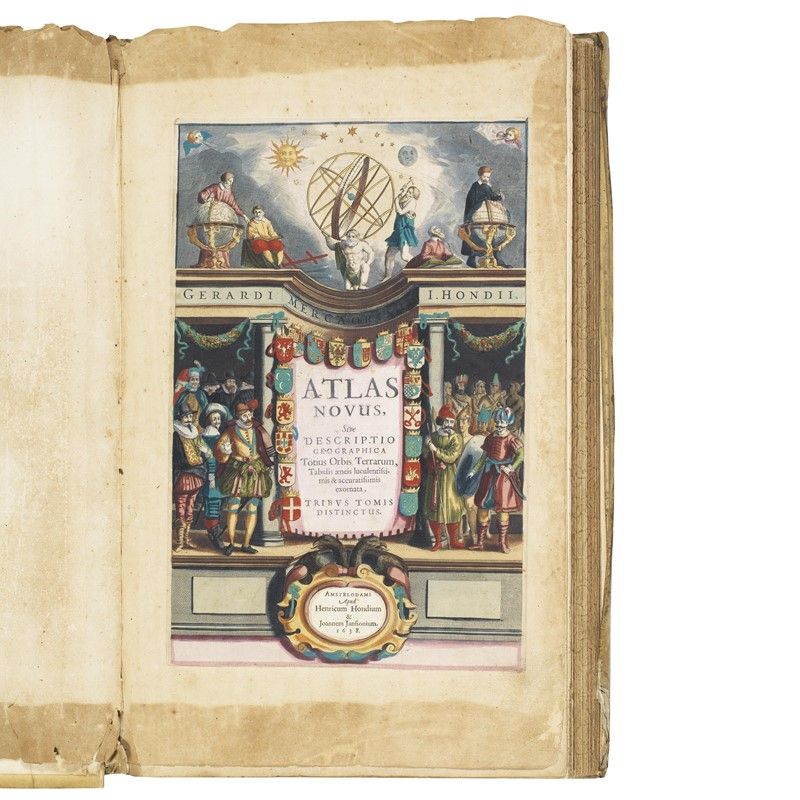 GERARDI MERCATORIS ET I. HONDII.
ATLAS
NOVUS,
Sive
DESCRIPTIO
GEOGRAPHICA
Totius Orbis Terrarum,
Tabulis æneis luculentissi-
mis & accuratissimis
exornata,
TRIBVS TOMIS
DISTINCTUS.
AMSTELODAMI
Apud
Henricum Hondium
&
Joannem Janssonium.
1638.